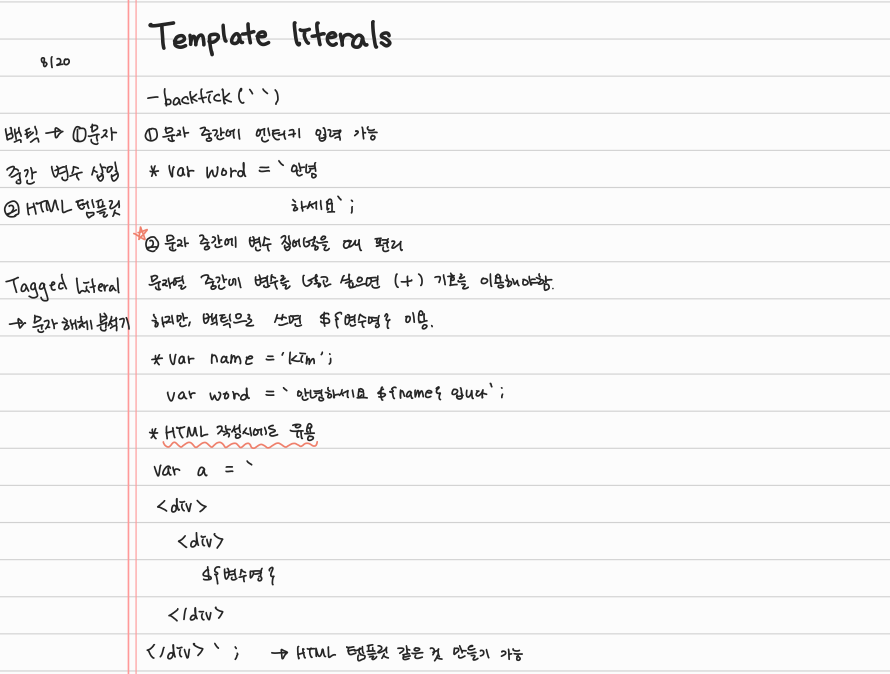 Template literals
8/20
- backtick (``)
백틱 → ① 문자
① 문자 중간에 엔터키 입력 가능
중간 변수 삽입
* var word = `안녕
② HTML 템플릿
하세요`;
☆② 문자 중간에 변수 집어넣을 때 편리
Tagged Literal
문자열 중간에 변수를 넣고 싶으면 (+) 기호를 이용해야함.
→ 문자 해체분석기
하지만, 백틱으로 쓰면 ${변수명} 이용.
* var name = 'kim';
var word = `안녕하세요 ${name} 입니다`;
* HTML 작성시에도 유용
var a = `
<div>
<div>
${변수명}
</div>
</div>`; → HTML 템플릿 같은 것 만들기 가능